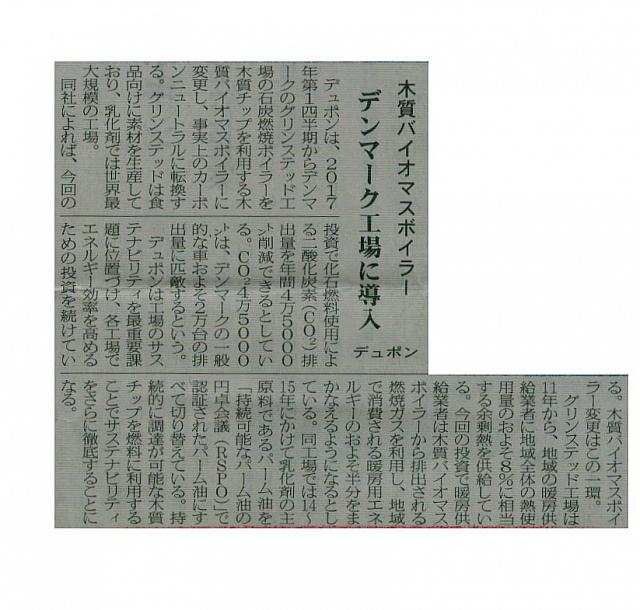 木質バイオマスボイラー
デンマーク工場に導入
デュポン
デュポンは、2017
年第1四半期からデンマ
ークのグリンステッド工
場の石炭燃焼ボイラーを
木質チップを利用する木
質バイオマスボイラーに
変更し、事実上のカーボ
ンニュートラルに転換す
る。グリンステッドは食
品向けに素材を生産して
おり、乳化剤では世界最
大規模の工場。
同社によれば、今回の
投資で化石燃料使用によ
る二酸化炭素（CO₂）排
出量を年間4万5000
㌧削減できるとしてい
る。CO₂4万5000
㌧は、デンマークの一般
的な車およそ2万台の排
出量に匹敵するという。
デュポンは工場のサス
テナビリティを最重要課
題に位置づけ、各工場で
エネルギー効率を高める
ための投資を続けてい
る。木質バイオマスボイ
ラー変更はこの一環。
グリンステッド工場は
11年から、地域の暖房供
給業者に地域全体の熱使
用量のおよそ8％に相当
する余剰熱を供給してい
る。今回の投資で暖房供
給業者は木質バイオマス
ボイラーから排出される
燃焼ガスを利用し、地域
で消費される暖房用エネ
ルギーのおよそ半分をま
かなえるようになるとし
ている。同工場では14〜
15年にかけて乳化剤の主
原料であるパーム油を
「持続可能なパーム油の
円卓会議（RSPO）」で
認証されたパーム油にす
べて切り替えている。持
続的に調達が可能な木質
チップを燃料に利用する
ことでサステナビリティ
をさらに徹底することに
なる。